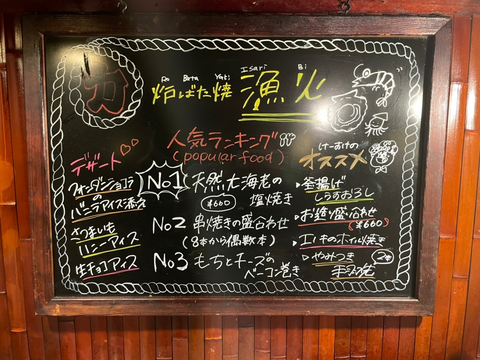 Ro Bata Yaki
Isari Bi
炉ばた焼 漁火
人気ランキング
(popular food)
No1 天然大海老の
塩焼き
¥660
No2 串焼きの盛合わせ
(8本から偶数本)
No3 もちとチーズ
ベーコン巻き
デザート
フォンダンショコラ
の
バニラアイス添え
さつまいも
ハニーアイス
生チョコアイス
けーすけの
オススメ
釜揚げ
しらすおろし
お造り盛合わせ
(¥660)
エイヒレのホイル焼き
やみつき
手羽先
2本